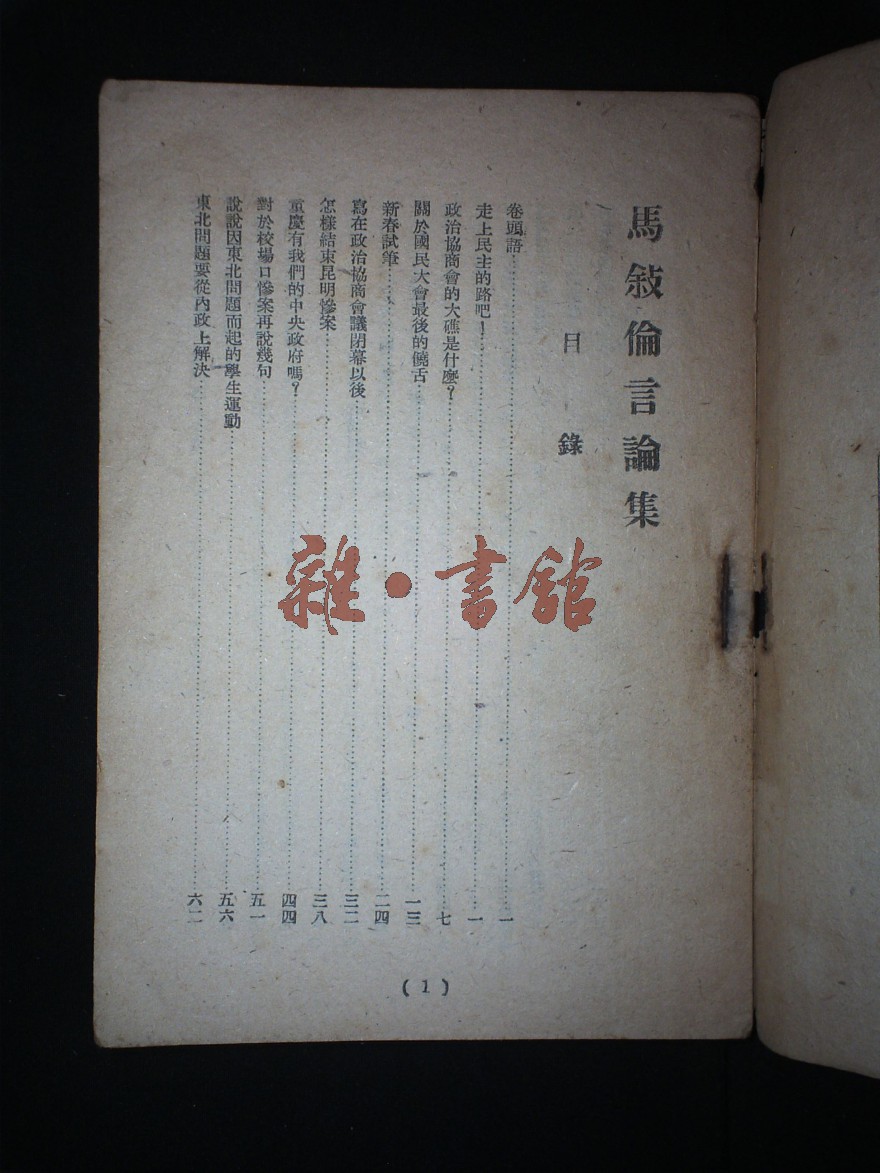 馬敍倫言論集
目錄
卷頭語……一
走上民主的路吧！……一
政治協商會的大礁是什麼？……七
關於國民大會最後的饒舌……一三
新春試筆……二四
寫在政治協商會議閉幕以後……三二
怎樣結束昆明慘案……三八
重慶有我們的中央政府嗎？……四四
對於校場口慘案再說幾句……五一
說說因東北問題而起的學生運動……五六
東北問題要從內政上解決……六二
(1)
雜·書館